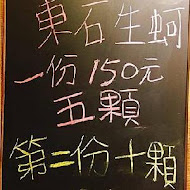 東石生蚵
一份150元
五顆
第二份十顆